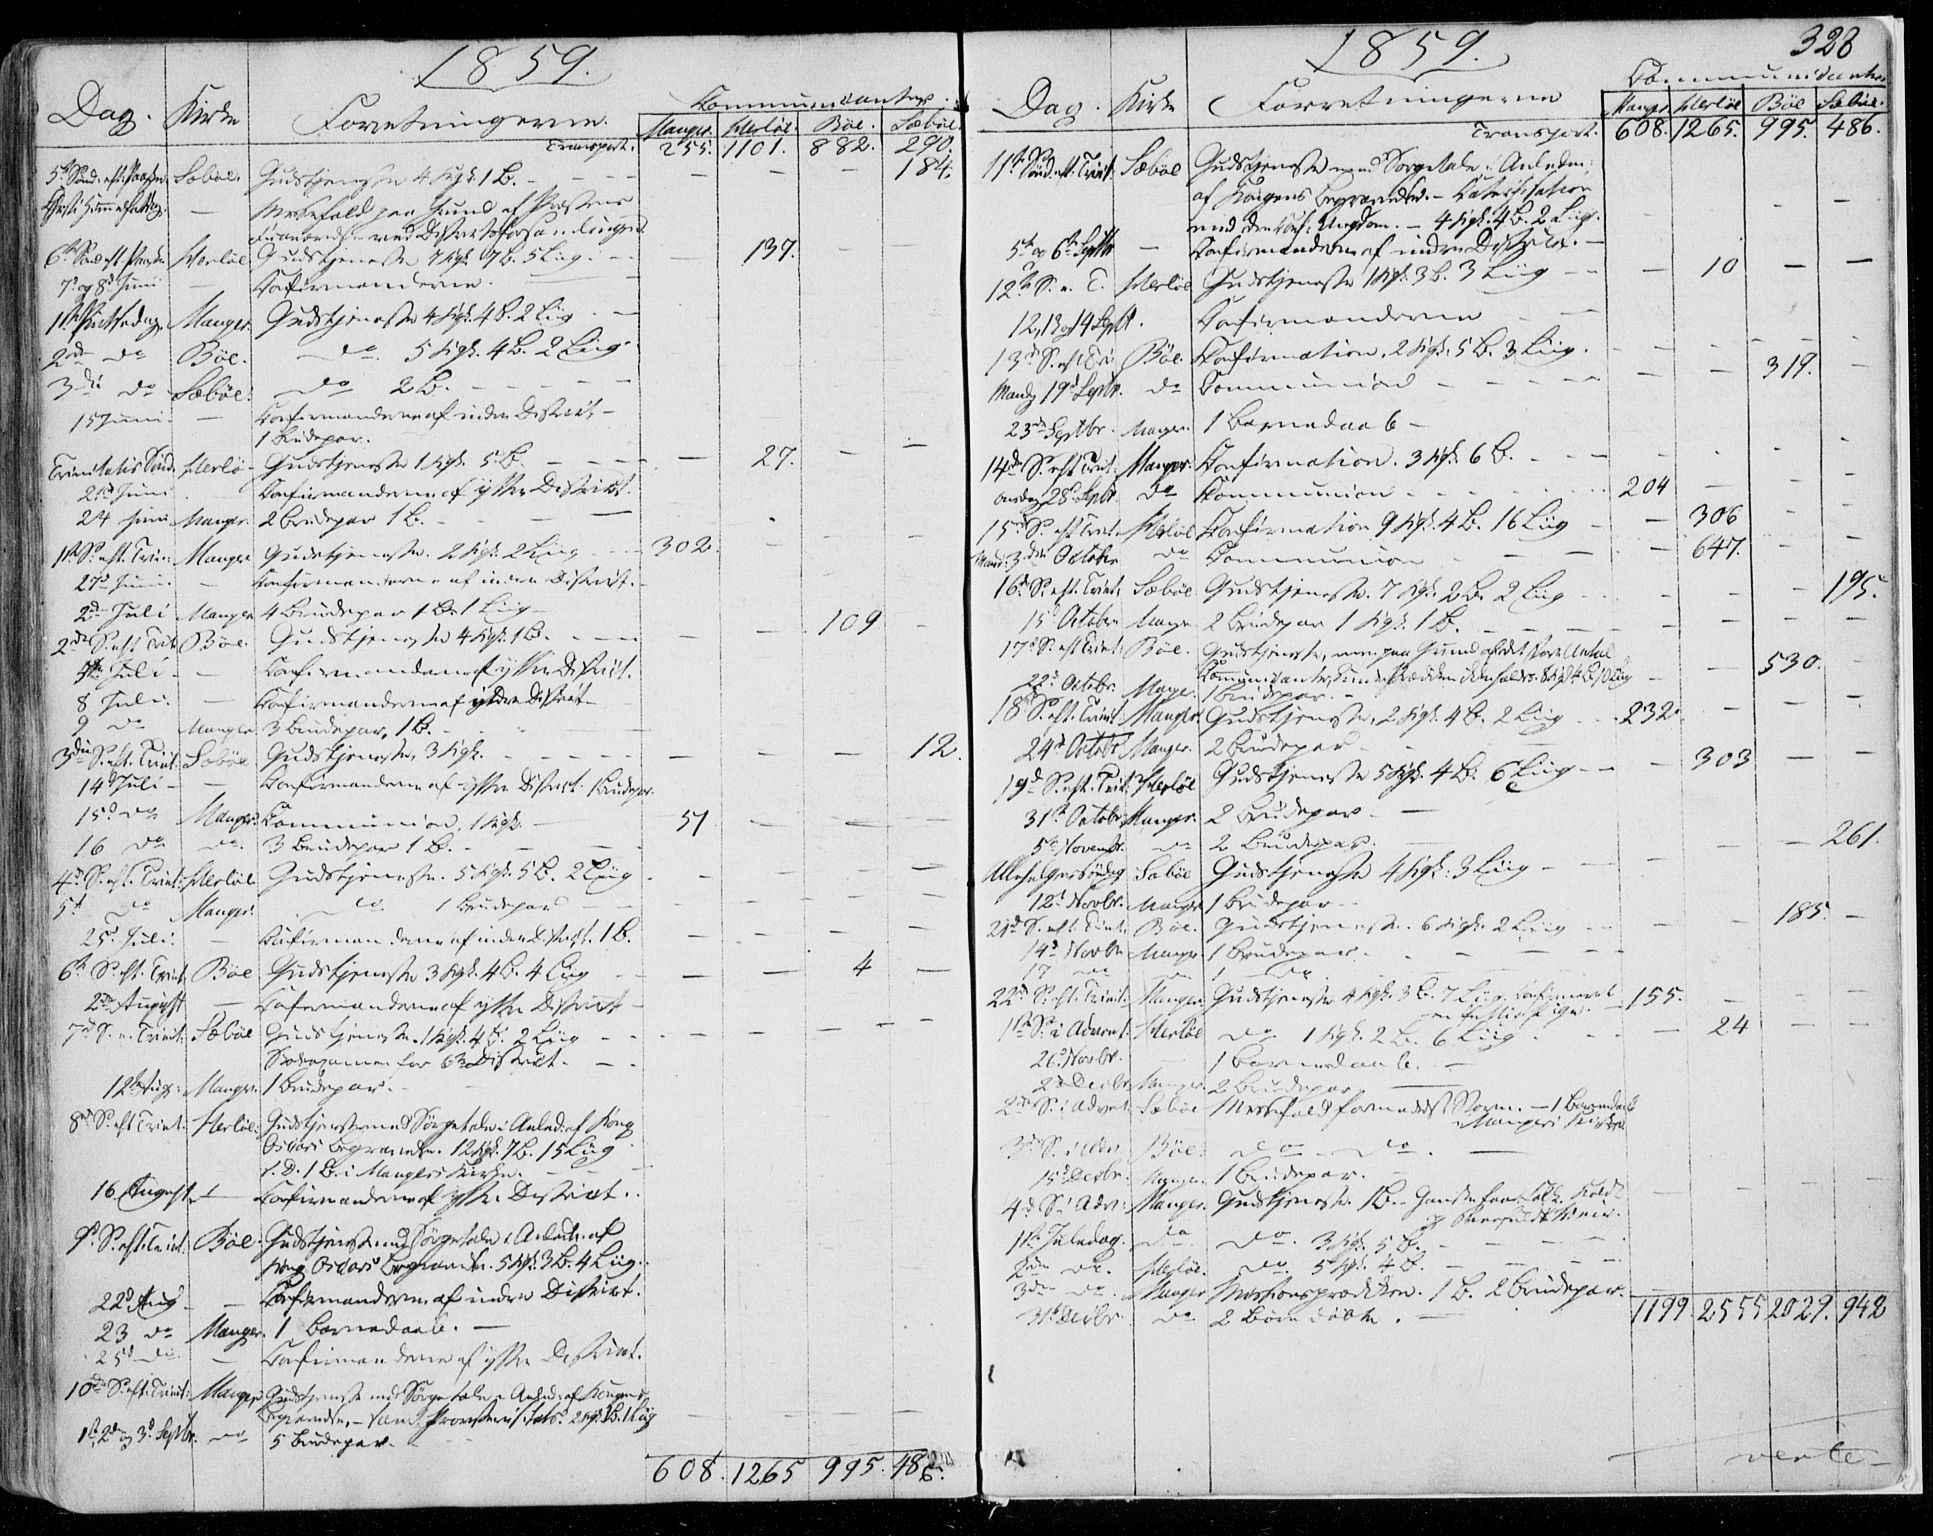 1859.
Dag. Kirke Forretningerne. Communicanter.
Manger. Herløe. Böe. Sæböe.
Transport. 255. 1101. 882. 290.
5te Sönd. eft. Paaske Sæböe. Gudstjeneste 4 Kgk. 1 B. – – – 184.
Christi Himmelfartsdag. – Messefald paa Grund af Præstens
6te Sönd. eft. Paaske Herløe Gudstjeneste 7 Kgk. 7 B. 5 Liig. – 137. – –
7de og 8de Juni – Confirmanderne.
1ste Pintsedag. Manger. Gudstjeneste 4 Kgk. 4 B. 2 Liig –
2den do Böe. do. 5 Kgk. 4 B. 2 Liig.
3die do Sæböe. do 2 B. – – –
15 Juni. – Confirmanderne af indre District –
1 Brudepar.
Trinitatis Sönd. Herlø – Gudstjeneste 1 Kgk. 5 B. – – 27. – –
21de Juni – Confirmanderne af ytre District.
24 Juni Manger. 2 Brudepar 1 B. –
1ste S. eft. Trin: Manger Gudstjeneste. 2 Kgk. 2 Liig – 302. – – –
27de Juni. – Confirmanderne af indre District. –
2den Juli Manger 4 Brudepar 1 B. 1 Liig –
2den S. eft. Trin. Böe. Gudstjeneste 4 Kgk. 1 B. – – – 109 –
Juli – – Confirmanderne af ytre District.
8 Juli. – Confirmanderne af District –
9 do Manger 3 Brudepar, 1 B. –
3die S. eft. Trint. Sæböe Gudstjeneste, 3 Kgk. – – – – 12.
14de Juli – – Confirmanderne af ytre District. 1 Brudepar.
15de do Manger. Communion. 1 Kgk. – 51 – – –
16 do do. 3 Brudepar 1 B. –
4de S. eft. Trint: Herløe Gudstjeneste. 5 Kgk. 5 B. 2 Liig. – – – –
5te do Manger. do. 1 Brudepar – – –
25de Juli. – Confirmanderne af indre District. 1 B.
6te S. eft. Trint. Böe Gudstjeneste 3 Kgk. 4 B. 4 Liig – – 4 –
2den August – Confirmanderne af ytre District –
7de S. e. Trint: Sæböe Gudstjeneste. 1 Kgk. 4 B. 2 Liig – – – –
Skoleexamen for 6te District. –
12te Aug. Manger. 1 Brudepar. –
8de S. eft. Trint. Herløe. Gudstjeneste med Sörgetale i Anled: af Kong
Oscars Begravelse. 12 Kgk. 7 B. 15 Liig
s. D. 1 B. i Mangers Kirke. – – –
16 August – Confirmanderne af ytre District.
9de S. eft. Trint. Böe. Gudstjeneste med Sörgetale i Anledn. af
Kong Oscars Begravelse. 5 Kgk. 3 B. 4 Liig.
22de Aug – – Confirmanderne af indre District.
23 do Manger. 1 Barnedaab. –
25de do. – Confirmanderne af ytre District.
10de S. eft. Trint: Manger Gudstjeneste med Sörgetale i Anled: af Kongens
Begravelse. –
1ste, 2den og 3die Septbr. do 5 Brudepar. –
608. 1265 995. 486.

1859. 328
Dag. Kirke Forretningerne Communicanter
Manger Herløe Böe Sæböe.
Transport. 608. 1265. 995. 486.
11te Sönd. eft. Trint. Sæböe Gudstjeneste med Sorgetale i Anledn:
af Kongens Begravelse. – Catechisation
med den conf. Ungdom. – 4 Kgk. 4 B. 2 Liig.
5te og 6te Septbr – Confirmanderne af indre District. –
12te S. e. T. Herløe Gudstjeneste 1 Kgk. 3 B. 3 Liig – – 10 – –
12, 13 og 14 Sept. Confirmanderne
13de S. eft. Tri. Böe. Confirmation. 2 Kgk. 5 B. 3 Liig.
Mandg 19de Septbr. do Communion – – – 319. –
23de Septbr. Manger. 1 Barnedaab –
14de S. eft. Trint. Manger. Confirmation. 3 Kgk. 6 B. – – –
Onsdag 28de Septbr. do Communion – – 204 – – –
15de S. eft Trint Herløe Confirmation 9 Kgk. 4 B. 16 Liig – – 306 – –
Mand: 3die October do Communion – – – 647. – –
16de S. eft. Trint. Sæböe Gudstjeneste. 7 Kgk. 2 B. 2 Liig – – – 195.
15de October Manger 2 Brudepar 1 Kgk. 1 B. – – –
17de S. eft Trint. Böe. Gudstjeneste, men paa Grund af det store Antal
530. –
22de Octobr. Manger. 1 Brudepar. –
18de S. eft. Trint. Manger. Gudstjeneste, 2 Kgk. 4 B. 2 Liig – 232. – – –
24de Octobr Manger. 2 Brudepar –
19de S. eft. Trint. Herløe Gudstjeneste 5 Kgk. 4 B. 6 Liig – – 303 – –
31te Octobr Manger. 2 Brudepar –
5te Novembr. do 2 Brudepar. –
Allehelgens söndag Sæböe Gudstjeneste 4 Kgk. 3 Liig – – – – 261.
12te Novbr. Manger 1 Brudepar –
21de S. eft. Trint. Böe. Gudstjeneste. 6 Kgk. 2 Liig – – 185. –
14de Novbr Manger 1 Brudepar. –
17 do do 1 do
22de S. eft. Trint. Manger. Gudstjeneste 4 Kgk. 3 B. 7 Liig. Confirmeret 155. – – –
1ste S. i Advent. Herløe do 1 Kgk. 2 B. 6 Liig. – 24 – –
26 Novbr. 1 Barnedaab. –
2den Decbr Manger. 2 Brudepar –
2den S. i Advent. Sæböe Messefald formedelst Storm. – 1 Barnedaab
i Mangers Kirke
3die S. i Adv Böe. do do. –
15de Decbr. Manger 1 Brudepar. –
4de S. i Adv. Manger. Gudstjeneste. 1 B. –
1ste Juledag. do do. 3 Kgk. 5 B. – –
2den do. Herløe. do. 5 Kgk. 4 B. –
3die do. Manger Missionsprædiken. 1 B. 2 Brudepar.
31te Decbr. do 2 Börn döbte. –
1199. 2555 2029. 942
verte –